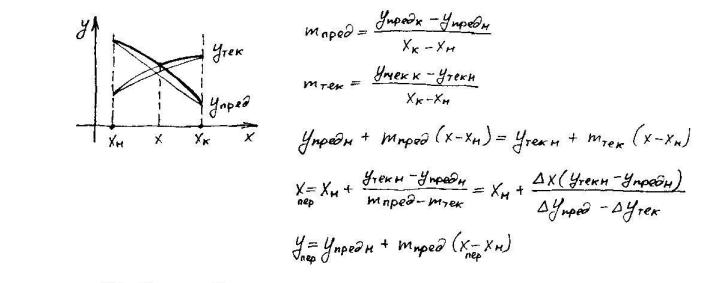 y
yтек
yпред
xн x xк x
mпред = (yпредк − yпредн) / (xк − xн)
mтек = (yтекк − yтекн) / (xк − xн)
yпредн + mпред (x − xн) = yтекн + mтек (x − xн)
xпер = xн + (yтекн − yпредн) / (mпред − mтек) = xн + Δx (yтекн − yпредн) / (Δyпред − Δyтек)
yпер = yпредн + mпред (xпер − xн)